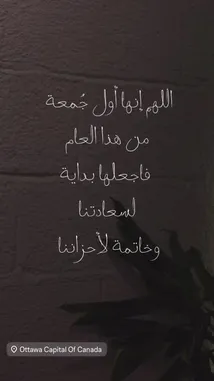 اللهم إنها أول جُمعة
من هذا العام
فاجعلها بداية
لسعادتنا
وخاتمة لأحزاننا
Ottawa Capital Of Canada